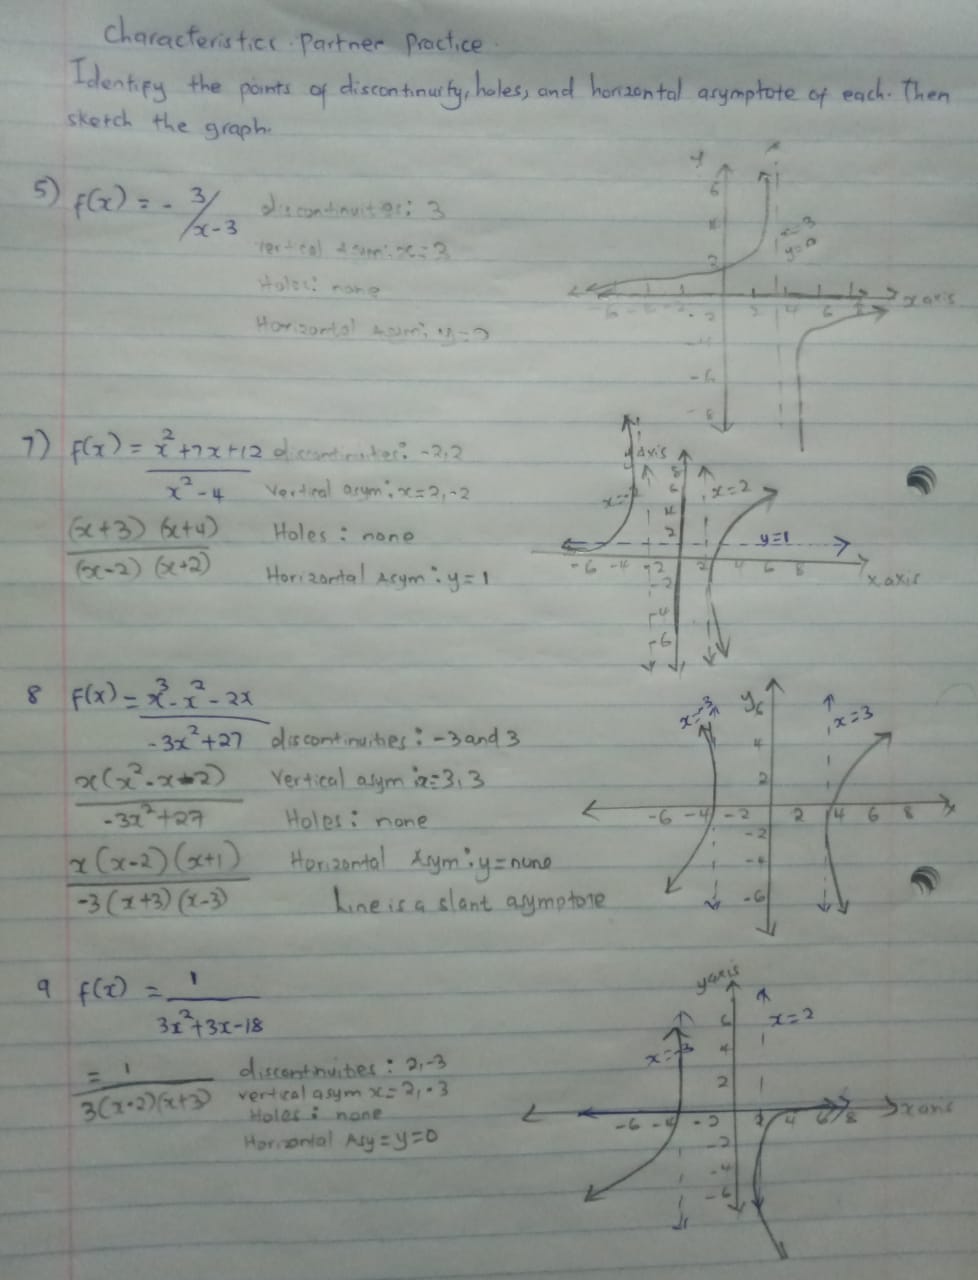 Characteristics Partner Practice.
Identify the points of discontinuity, holes, and horizontal asymptote of each. Then
sketch the graph.
5) f(x) = - 3/x-3
discontinuites: 3
Vertical Asym: x=3
Holes: none
Horizontal Asym:
y
6
x=3
y=0
x axis
-6 -4 -2 2 4 6 8
-2
-4
-6
-8
7) f(x) = x²+7x+12 / x²-4
discontinuites: -2,2
Vertical asym: x=2,-2
(x+3) (x+4) / (x-2) (x+2)
Holes: none
Horizontal Asym: y=1
y axis
x=2
y=1
8
6
4
2
-6 -4 -2 2 4 6 8
x axis
-2
-4
-6
8 f(x) = x³-x²-2x / -3x²+27
discontinuities: -3 and 3
Vertical asym x=3,3
Holes: none
x(x²-x-2) / -3x²+27
x(x-2)(x+1) / -3(x+3)(x-3)
Horizontal Asym: y=none
Line is a slant asymptote
y
x=-3
x=3
6
4
2
-6 -4 -2 2 4 6 8 x
-2
-4
-6
9 f(x) = 1 / 3x²+3x-18
= 1 / 3(x-2)(x+3)
discontinuities: 2,-3
vertical asym x=2,-3
Holes: none
Horizontal Asy=y=0
y axis
x=-3
x=2
6
4
2
-6 -4 -2 2 4 6 8 x axis
-2
-4
-6